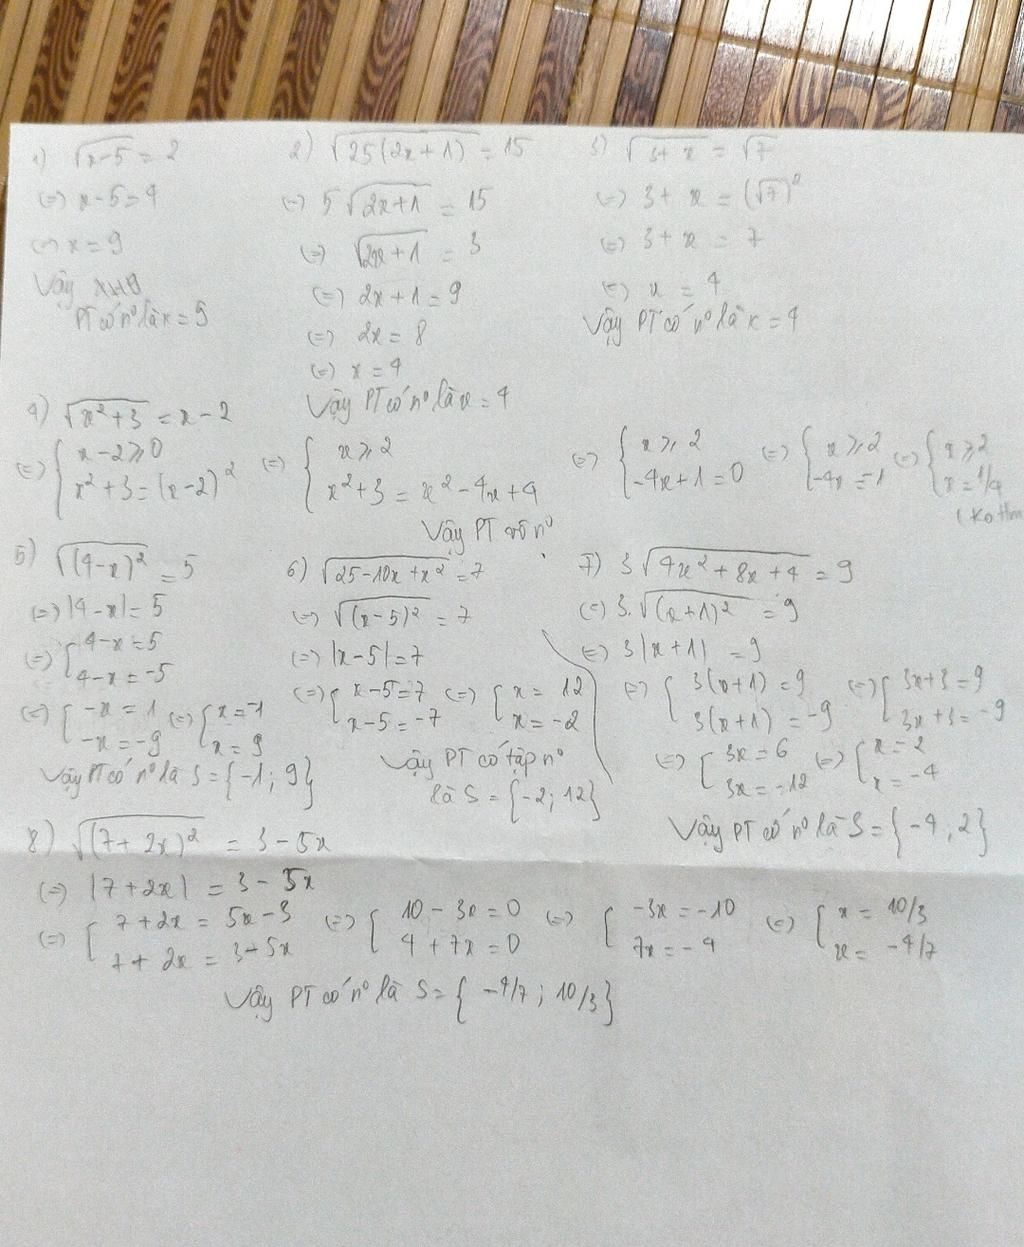 1) √(x-5) = 2
(=) x-5=4
(=) x=9
Vậy
PT có n° là x = 5
2) √(25(2x+1)) = 15
(=) 5√(2x+1) = 15
(=) √(2x+1) = 3
(=) 2x+1 = 9
(=) 2x = 8
(=) x = 4
Vậy PT có n° là x = 4
3) √(3+x) = √7
(=) 3+x = (√7)²
(=) 3+x = 7
(=) x = 4
Vậy PT có n° là x = 4
4) √(x²+3) = x-2
(=) { x-2⩾0 (=) { x⩾2 (=) { x⩾2 (=) { x⩾2 (=) { x⩾2
x²+3=(x-2)² x²+3 = x²-4x+4 -4x+1=0 -4x=-1 x=1/4
(Ko tlm
Vậy PT vô n°
5) √((4-x)²) = 5
(=) |4-x| = 5
(=) [ 4-x=5
4-x=-5
(=) [ -x=1 (=) [ x=-1
-x=-9 x=9
Vậy PT có n° là S={-1; 9}
6) √(25-10x+x²) = 7
(=) √((x-5)²) = 7
(=) |x-5| = 7
(=) [ x-5=7 (=) [ x = 12
x-5=-7 x=-2
Vậy PT có tập n°
là S = {-2; 12}
7) 3√(4x²+8x+4) = 9
(=) 3.√((x+1)²) = 9
(=) 3|x+1| = 9
(=) [ 3(x+1) = 9 (=) [ 3x+3=9
3(x+1) = -9 3x+3=-9
(=) [ 3x=6 (=) [ x=2
3x=-12 x=-4
Vậy PT có n° là S={-4; 2}
8) √((7+2x)²) = 3-5x
(=) |7+2x| = 3-5x
(=) [ 7+2x = 5x-3 (=) [ 10-3x=0 (=) [ -3x=-10 (=) [ x = 10/3
7+2x = 3-5x 4+7x=0 7x=-4 x= -4/7
Vậy PT có n° là S={-4/7; 10/3}